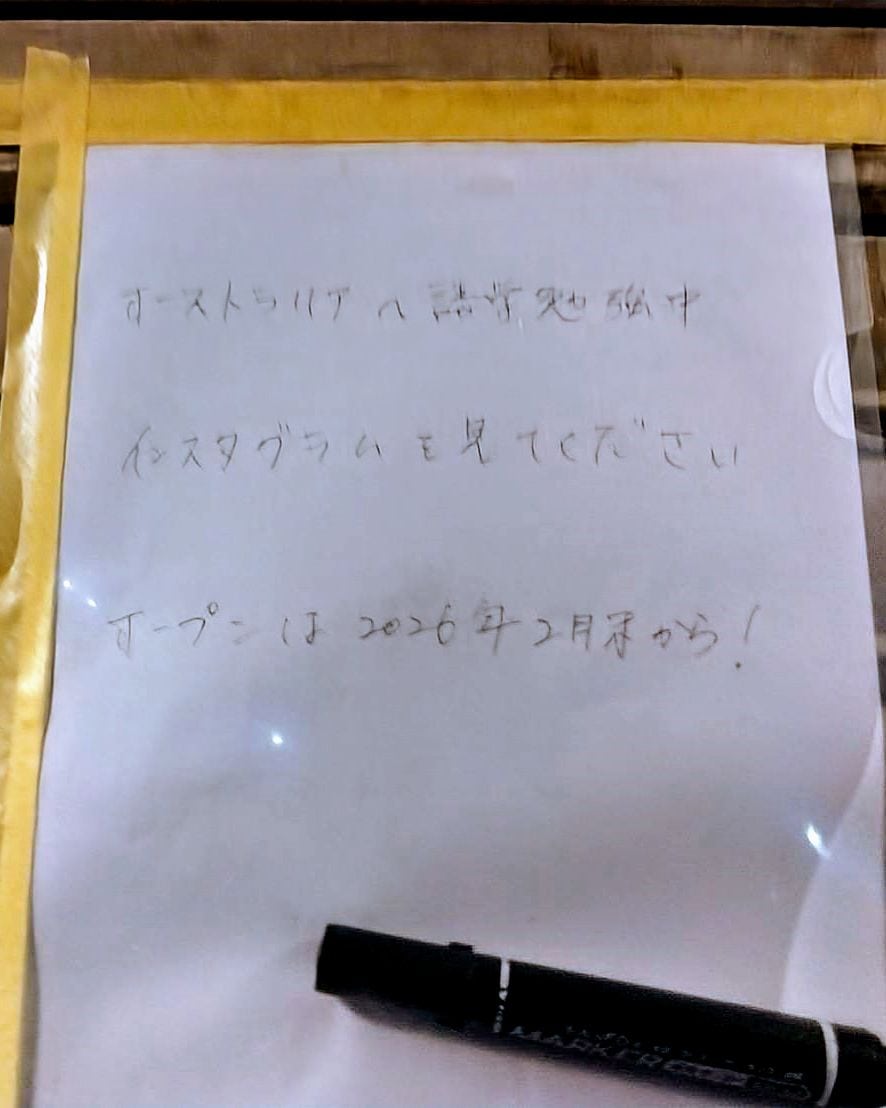 オーストラリアへ語学勉強中
インスタグラムを見てください
オープンは2026年2月末から!
MARKER